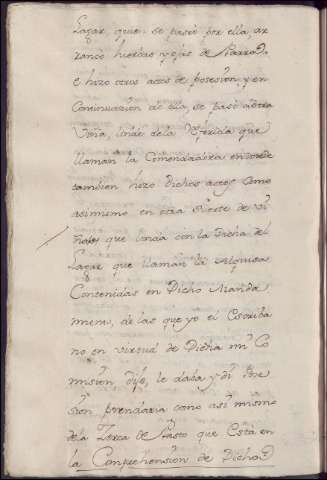 Lagar, que se paseo por ella, ar
rancó hierbas y ojas de Parra
e hizo otros actos de posesion, y en
Continuazion de ella, se pasó a otra
Viña, linde de la referida que
llaman la Comendadora en donde
tambien hizo dichos actos, como
asimismo en otra suerte de Vi
ñas, que linda con la dicha del
Lagar que llaman la
Contenidas en Dicho Manda
miento, de las que yo el Escriba
no en virtud de Dicha mi Co
mision, dije, le daba y dí Pose
sion prendaria como asi mismo
de la Zerca de Pasto que Está en
la Comprehension de Dicha